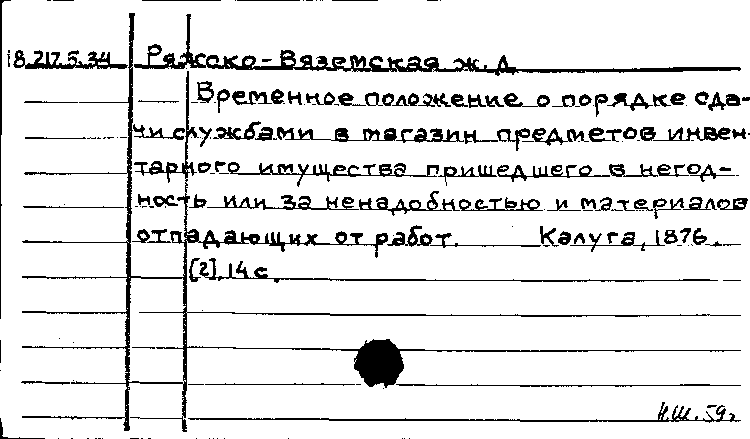 18.217.5.34 Ряжско-Вяземская ж.д.
Временное положение о порядке сда-
чи службами в магазин предметов инвен-
тарного имущества пришедшего в негод-
ность или за ненадобностью и материалов
отпадающих от работ. Калуга, 1876.
[2], 14 с.
Н.Ш. 59г